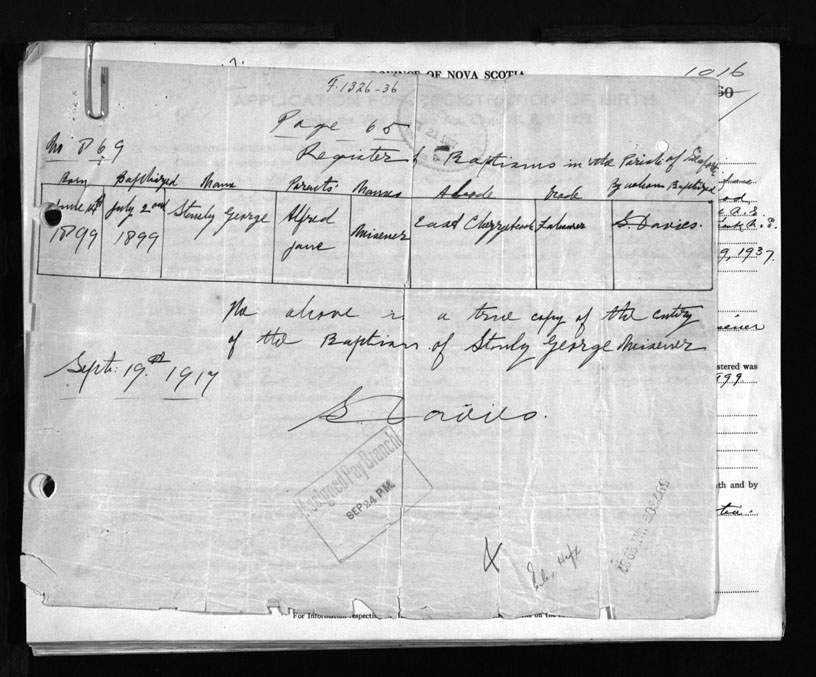 PROVINCE OF NOVA SCOTIA
1016
F.1326-36
APPLICATION FOR REGISTRATION OF BIRTH
Page 65
No 869
Register of Baptisms in the Parish of
Born Baptized Name Parents' Names Abode Trade By whom Baptized
June 14th July 2nd Stanly George Alfred Misener East Chezzetcook S. Davies.
1899 1899 Jane
9, 1937.
The above is a true copy of the entry
of the Baptism of Stanly George Misener
Sept: 19th 1917
stered was
S. Davies.
Assigned Pay Branch
SEP 24 P.M.
th and by
X
For Information respecting